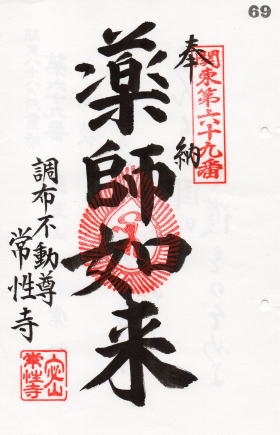 69
奉納
関東第六十九番
薬師如来
調布不動尊
常性寺
常性寺